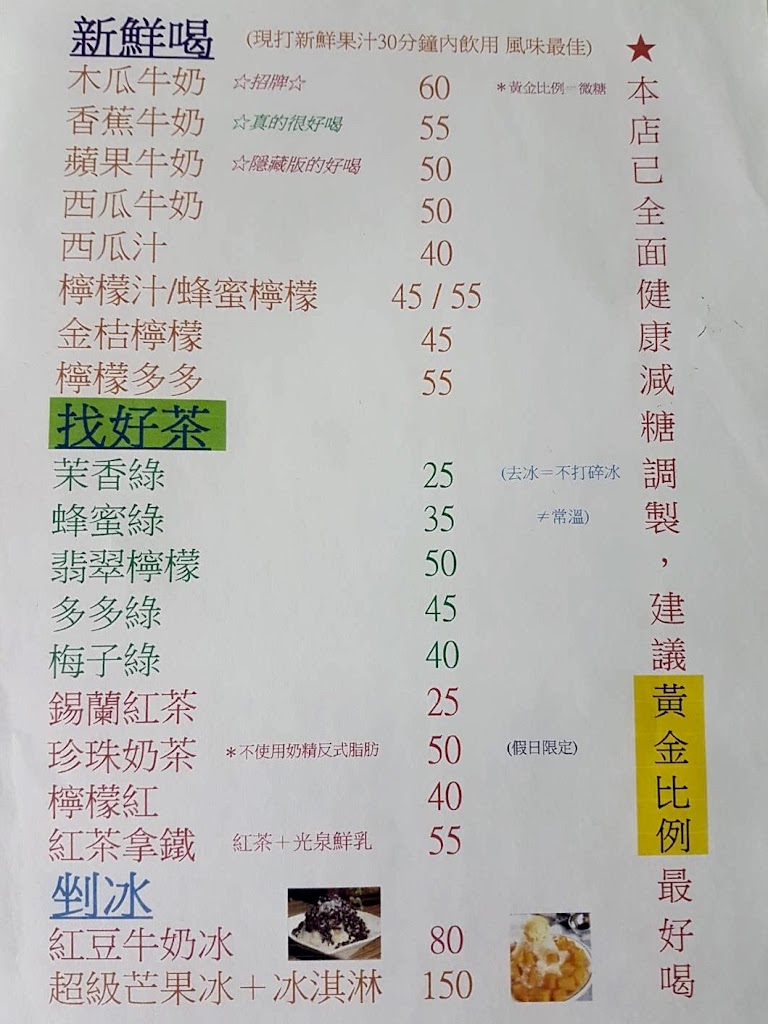 新鮮喝 (現打新鮮果汁30分鐘內飲用 風味最佳)
木瓜牛奶 ☆招牌☆ 60 *黃金比例=微糖
香蕉牛奶 ☆真的很好喝 55
蘋果牛奶 ☆隱藏版的好喝 50
西瓜牛奶 50
西瓜汁 40
檸檬汁/蜂蜜檸檬 45 / 55
金桔檸檬 45
檸檬多多 55
找好茶
茉香綠 25 (去冰=不打碎冰
蜂蜜綠 35 ≠常溫)
翡翠檸檬 50
多多綠 45
梅子綠 40
錫蘭紅茶 25
珍珠奶茶 *不使用奶精反式脂肪 50 (假日限定)
檸檬紅 40
紅茶拿鐵 紅茶+光泉鮮乳 55
剉冰
紅豆牛奶冰 80
超級芒果冰+冰淇淋 150
★本店已全面健康減糖調製,建議黃金比例最好喝